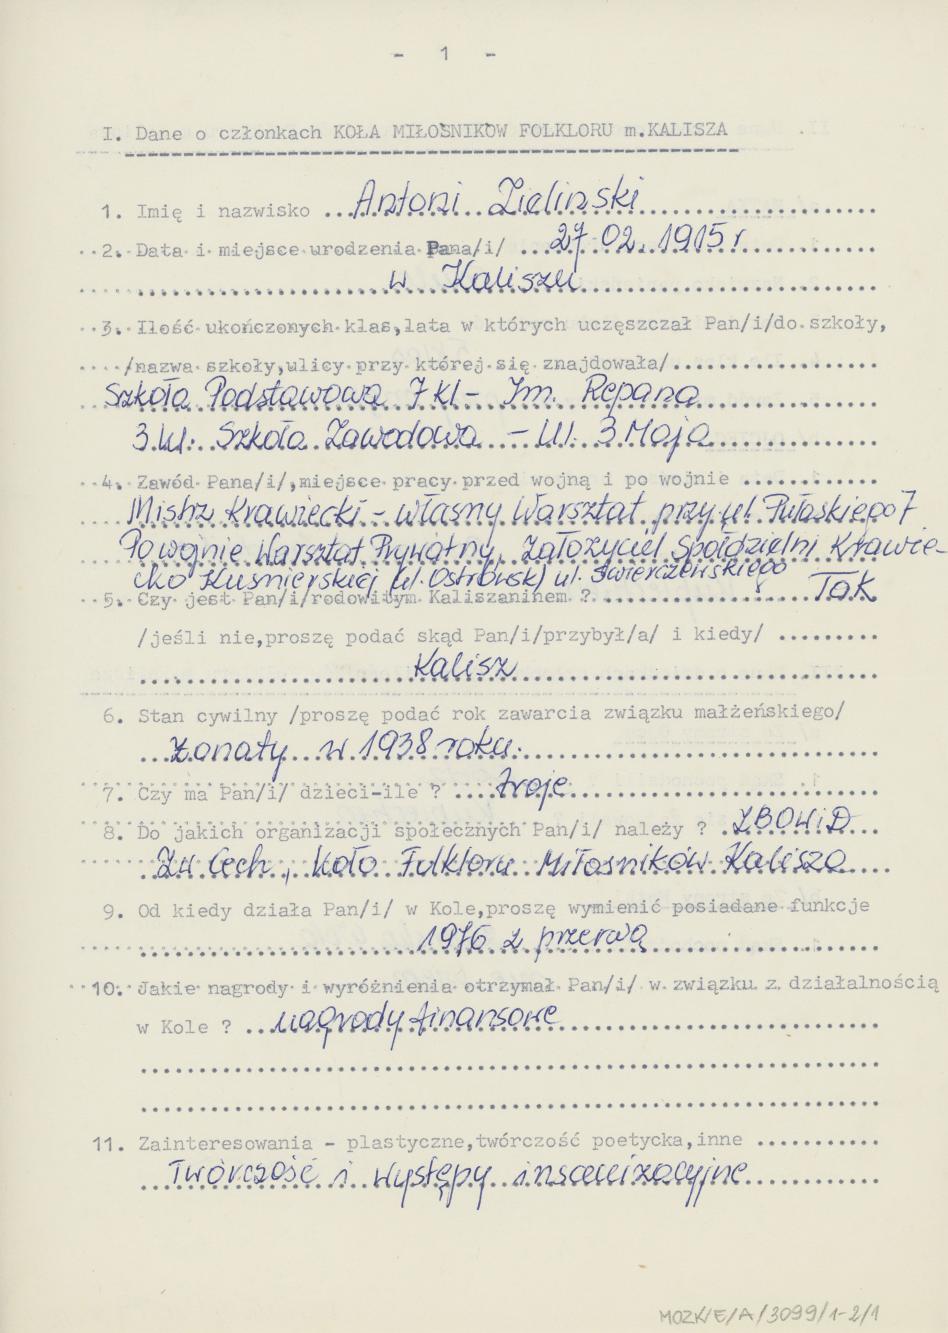 - 1 -
I. Dane o członkach KOŁA MIŁOŚNIKÓW FOLKLORU m.KALISZA
1. Imię i nazwisko ... Antoni Zielinski
2. Data i miejsce urodzenia Pana/i/ ... 27 02. 1915 r
w Kaliszu
3. Ilość ukończonych klas,lata w których uczęszczał Pan/i/do szkoły,
/nazwa szkoły,ulicy przy której się znajdowała/
Szkoła Podstawowa 7 kl - Im. Repana
3. kl. Szkoła Zawodowa - Ul. 3 Maja
4. Zawód Pana/i/,miejsce pracy przed wojną i po wojnie
Mistrz Krawiecki - własny Warsztat przy ul Pułaskiego 7
Po wojnie Warsztat Prywatny, Założyciel Spółdzielni Krawie-
cko Kuśnierskiej ul. Świerczewskiego
5. Czy jest Pan/i/rodowitym Kaliszaninem ? Tak
/jeśli nie,proszę podać skąd Pan/i/przybył/a/ i kiedy/
Kalisz
6. Stan cywilny /proszę podać rok zawarcia związku małżeńskiego/
żonaty w 1938 roku.
7. Czy ma Pan/i/ dzieci-ile ? troje
8. Do jakich organizacji społecznych Pan/i/ należy ? ZBOWiD
Zw Cech, Koło Folkloru Miłosników Kalisza
9. Od kiedy działa Pan/i/ w Kole,proszę wymienić posiadane funkcje
1976 z przerwą
10. Jakie nagrody i wyróżnienia otrzymał Pan/i/ w związku z działalnością
w Kole ? nagrody finansowe
11. Zainteresowania - plastyczne,twórczość poetycka,inne
Twórczość i występy inscenizacyjne
MOZK/E/A/3099/1-2/1